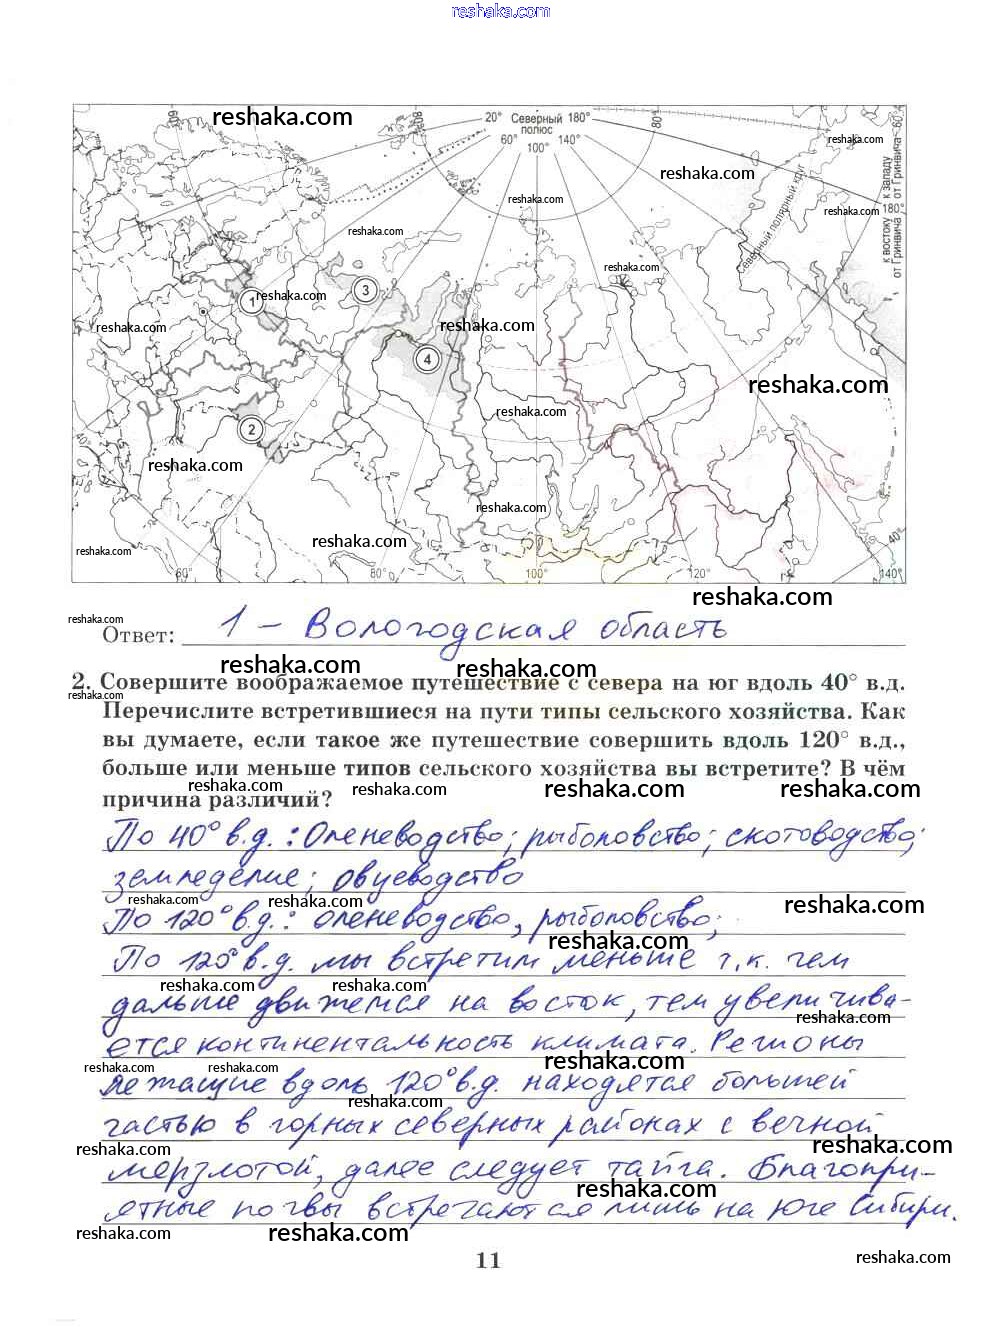 reshaka.com
60° reshaka.com 80° 20° Северный 180° 80° 60°
полюс
60° 140° reshaka.com
100°
reshaka.com
reshaka.com
reshaka.com 180°
reshaka.com
Северный полярный круг
к востоку к западу
от Гринвича от Гринвича
reshaka.com
1 reshaka.com 3
reshaka.com reshaka.com
4
reshaka.com
reshaka.com
reshaka.com 2
40° reshaka.com
reshaka.com
reshaka.com 40°
reshaka.com
60° 80° 100° 120° 140°
reshaka.com
reshaka.com
Ответ: 1 – Вологодская область
reshaka.com reshaka.com
2. Совершите воображаемое путешествие с севера на юг вдоль 40° в.д.
reshaka.com
Перечислите встретившиеся на пути типы сельского хозяйства. Как
вы думаете, если такое же путешествие совершить вдоль 120° в.д.,
больше или меньше типов сельского хозяйства вы встретите? В чём
reshaka.com reshaka.com reshaka.com reshaka.com
причина различий?
По 40° в.д.: Оленеводство; рыболовство; скотоводство;
земледелие; овцеводство
reshaka.com reshaka.com reshaka.com
По 120° в.д.: оленеводство, рыболовство;
reshaka.com
По 120° в.д. мы встретим меньше т.к. чем
reshaka.com reshaka.com
дальше движемся на восток, тем увеличива-
reshaka.com
ется континентальность климата. Регионы
reshaka.com reshaka.com reshaka.com
лежащие вдоль 120° в.д. находятся большей
reshaka.com
частью в горных северных районах с вечной
reshaka.com reshaka.com
мерзлотой, далее следует тайга. Благопри-
reshaka.com
ятные почвы встречаются лишь на юге Сибири.
reshaka.com reshaka.com
11
reshaka.com